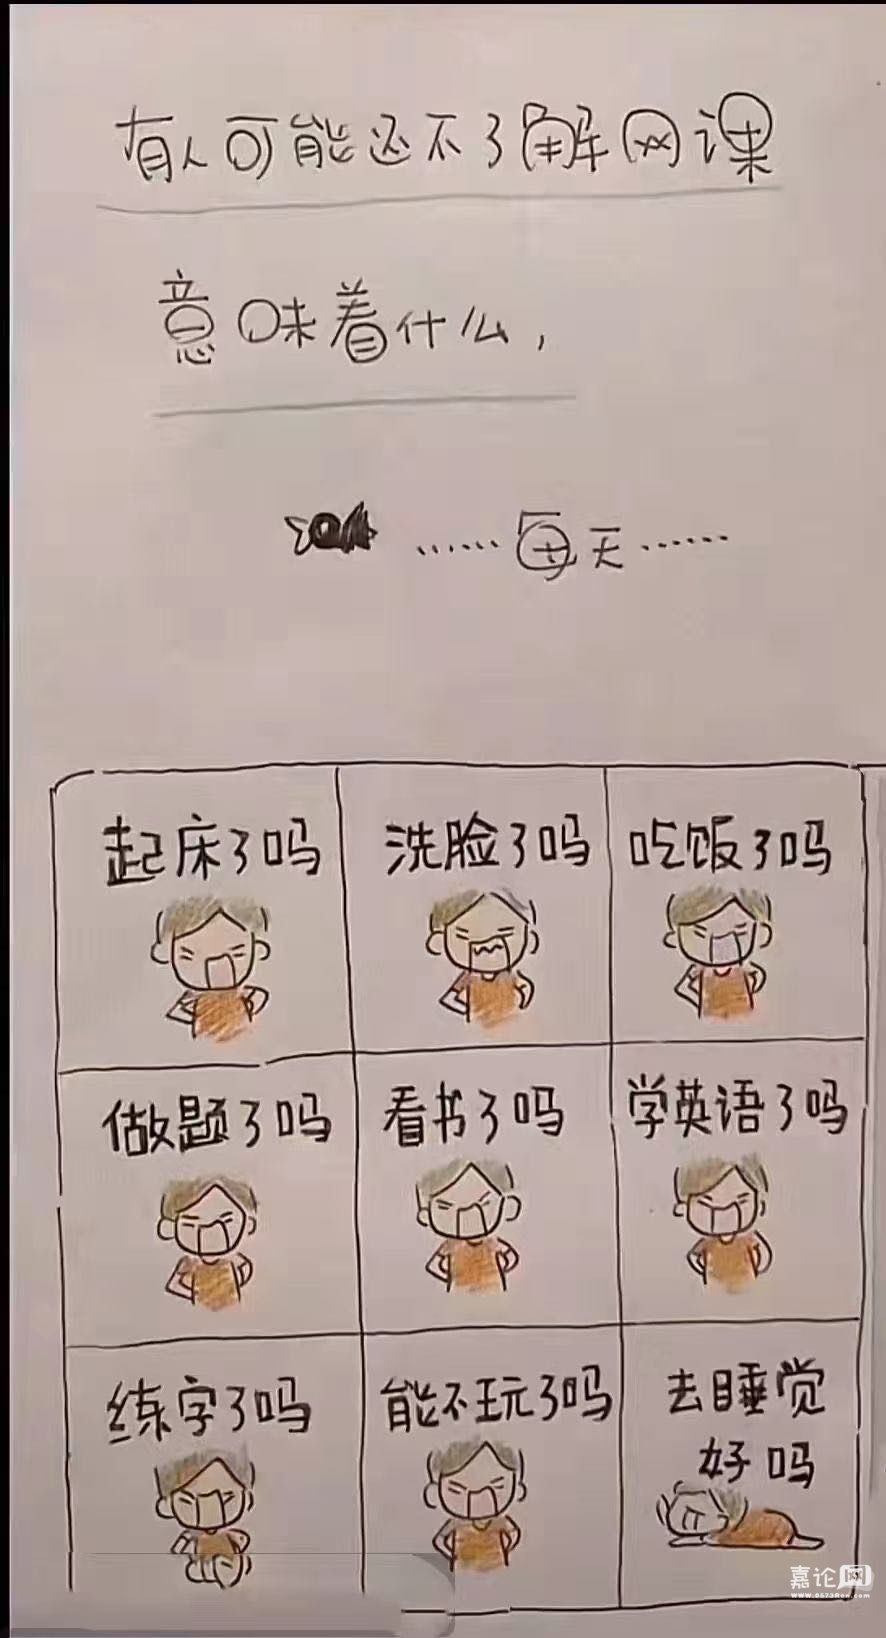 有人可能还不了解网课
意味着什么，
……每天……
起床了吗 洗脸了吗 吃饭了吗
做题了吗 看书了吗 学英语了吗
练字了吗 能不玩了吗 去睡觉
好吗
嘉论网
www.0573Ren.com